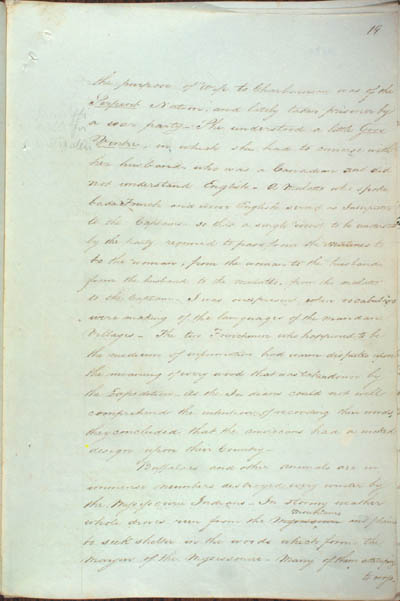 19
the purpose of Wife to Charbonneau was of the
Serpent Nation, and lately taken prisoner by
a war party - She understood a little Gros
Ventre, in which she had to converse with
her husband, who was a Canadian and did
not understand English - A Mulatto who spoke
bad French and worse English served as Interpreter
to the Captains - so that a single word to be understood
by the party required to pass from the natives to
to the woman, from the woman to the husband
from the husband to the mulatto, from the mulatto
to the Captain - I was once present when vocabularies
were making of the languages of the Mandane
Villages - The two Frenchmen who happened to be
the medium of information had warm disputes upon
the meaning of every word that was taken down by
the Expedition - As the Indians could not well
comprehend the intention of recording their words,
they concluded that the Americans had a wicked
design upon their Country -
Buffaloes and other animals are in
immense numbers destroyed every winter by
the Myssisouri Indians - In stormy weather
mountains
whole droves run from the and plains
to seek shelter in the woods which form the
Margin of the Myssisourie - Many of them attempting
to cross